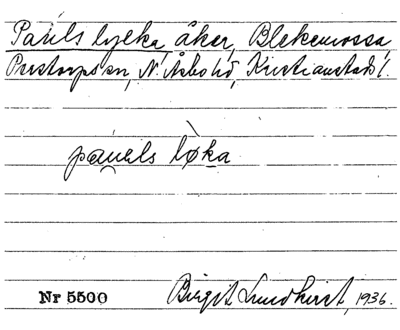 Pauls lycka, åker, Blekemossa,
Perstorps sn, N. Åsbo hd, Kristianstads l.
pauels lỳka
Nr 5500 Birgit Lundkvist, 1936.